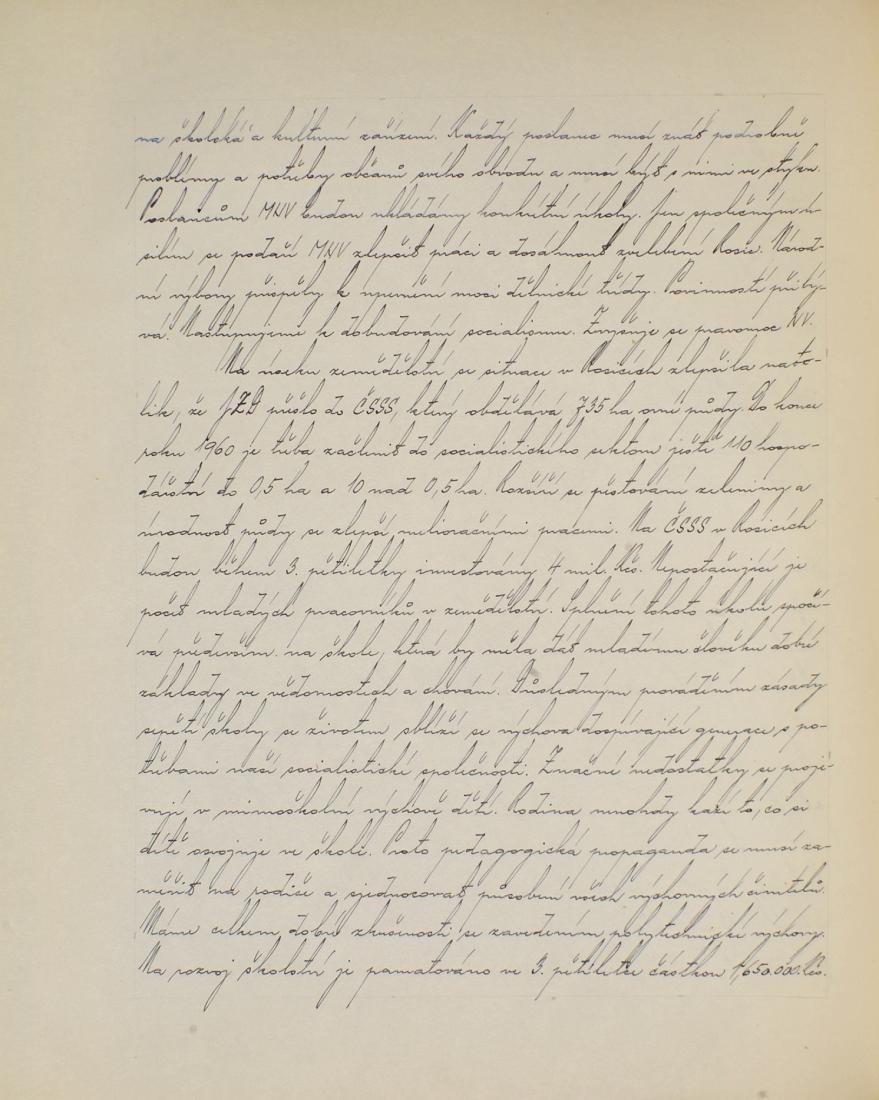 na školská a kulturní zařízení. Každý poslanec musí znát podrobně
problémy a potřeby občanů svého obvodu a musí být s nimi ve styku.
Poslancům MNV budou ukládány konkrétní úkoly. Jen společným ú-
silím se podaří MNV zlepšit práci a dosáhnout zvelebení Rosic. Národ-
ní výbory přispěly k upevnění moci dělnické třídy. Povinností přibý-
vá. Nastupujeme k dobudování socialismu. Zvyšuje se pravomoc NV.
Na úseku zemědělství se situace v Rosicích zlepšila nato-
lik, že JZD přešlo do ČSSS, který obdělává 735 ha orné půdy. Do konce
roku 1960 je třeba začlenit do socialistického sektoru ještě 110 hospo-
dářství do 0,5 ha a 10 nad 0,5 ha. Rozšíří se pěstování zeleniny a
úrodnost půdy se zlepší melioračními pracemi. Na ČSSS v Rosicích
budou během 3. pětiletky investovány 4 mil. Kčs. Nepostačující je
počet mladých pracovníků v zemědělství. Splnění tohoto úkolu spočí-
vá především na škole, která by měla dát mladému člověku dobré
základy ve vědomostech a chování. Důsledným prováděním zásady
sepětí školy se životem sblíží se výchova dospívající generace s po-
třebami naší socialistické společnosti. Značné nedostatky se proje-
vují v mimoškolní výchově dětí. Rodina mnohdy kazí to, co si
dítě osvojuje ve škole. Proto pedagogická propaganda se musí za-
měřit na rodiče a sjednocovat působení všech výchovných činitelů.
Máme celkem dobré zkušenosti se zavedením polytechnické výchovy.
Na rozvoj školství je pamatováno ve 3. pětiletce částkou 1,650.000.Kčs.